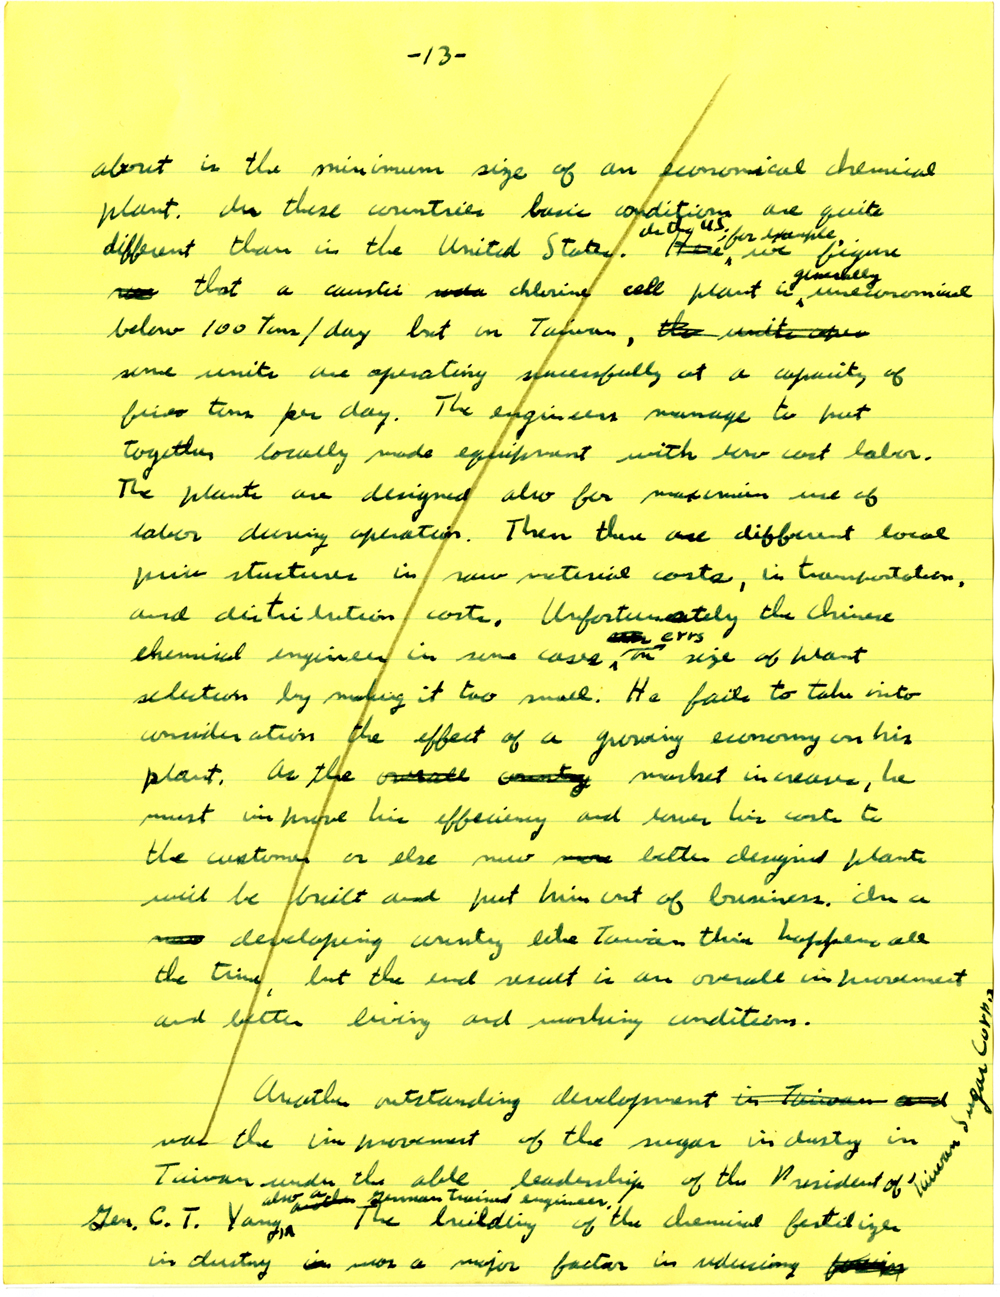 -13-
about is the minimum size of an economical chemical
plant. In these countries basic conditions are quite
different than in the United States. Here in the U.S., for example, we figure
that a caustic soda chlorine cell plant is generally uneconomical
below 100 Tons/day but in Taiwan, the units oper
some units are operating successfully at a capacity of
five tons per day. The engineers manage to put
together locally made equipment with low cost labor.
The plants are designed also for maximum use of
labor during operation. Then there are different local
price structures in raw material costs, in transportation,
and distribution costs. Unfortunately the Chinese
chemical engineer in some cases errs on size of plant
selection by making it too small. He fails to take into
consideration the effect of a growing economy on his
plant. As the overall country market increases, he
must improve his effeciency and lower his costs to
the customer or else new more better designed plants
will be built and put him out of business. In a
developing country like Taiwan this happens all
the time, but the end result is an overall improvement
and better living and working conditions.
Another outstanding development in Taiwan and
was the improvement of the sugar industry in
Taiwan under the able leadership of the President of Taiwan Sugar Corp.,
Gen. C. T. Yang, also a another German trained engineer. The building of the chemical fertilizer
industry in was a major factor in reducing foreign